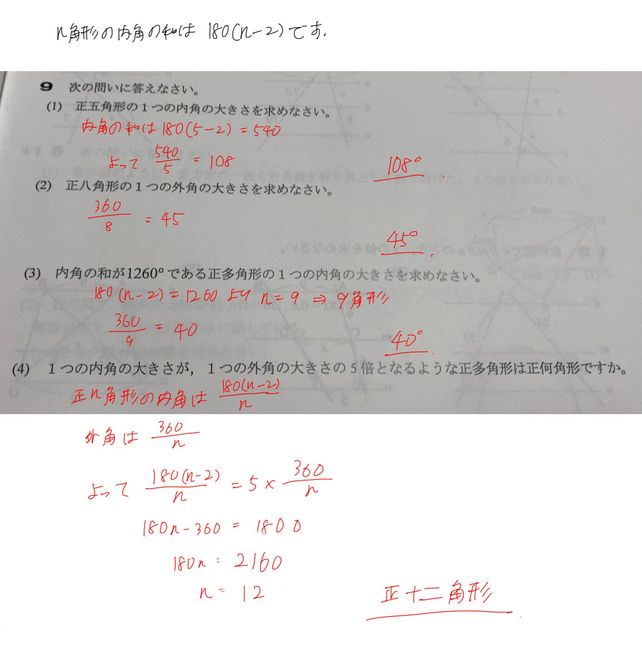 n角形の内角の和は 180(n-2)です.
9 次の問いに答えなさい。
(1) 正五角形の1つの内角の大きさを求めなさい。
内角の和は180(5-2)=540
よって 540/5 = 108
108°
(2) 正八角形の1つの外角の大きさを求めなさい。
360/8 = 45
45°
(3) 内角の和が1260°である正多角形の1つの内角の大きさを求めなさい。
180(n-2)=1260 より n=9 ⇒ 9角形
360/9 = 40
40°
(4) 1つの内角の大きさが,1つの外角の大きさの5倍となるような正多角形は正何角形ですか。
正n角形の内角は 180(n-2)/n
外角は 360/n
よって 180(n-2)/n = 5 × 360/n
180n-360 = 1800
180n = 2160
n = 12
正十二角形